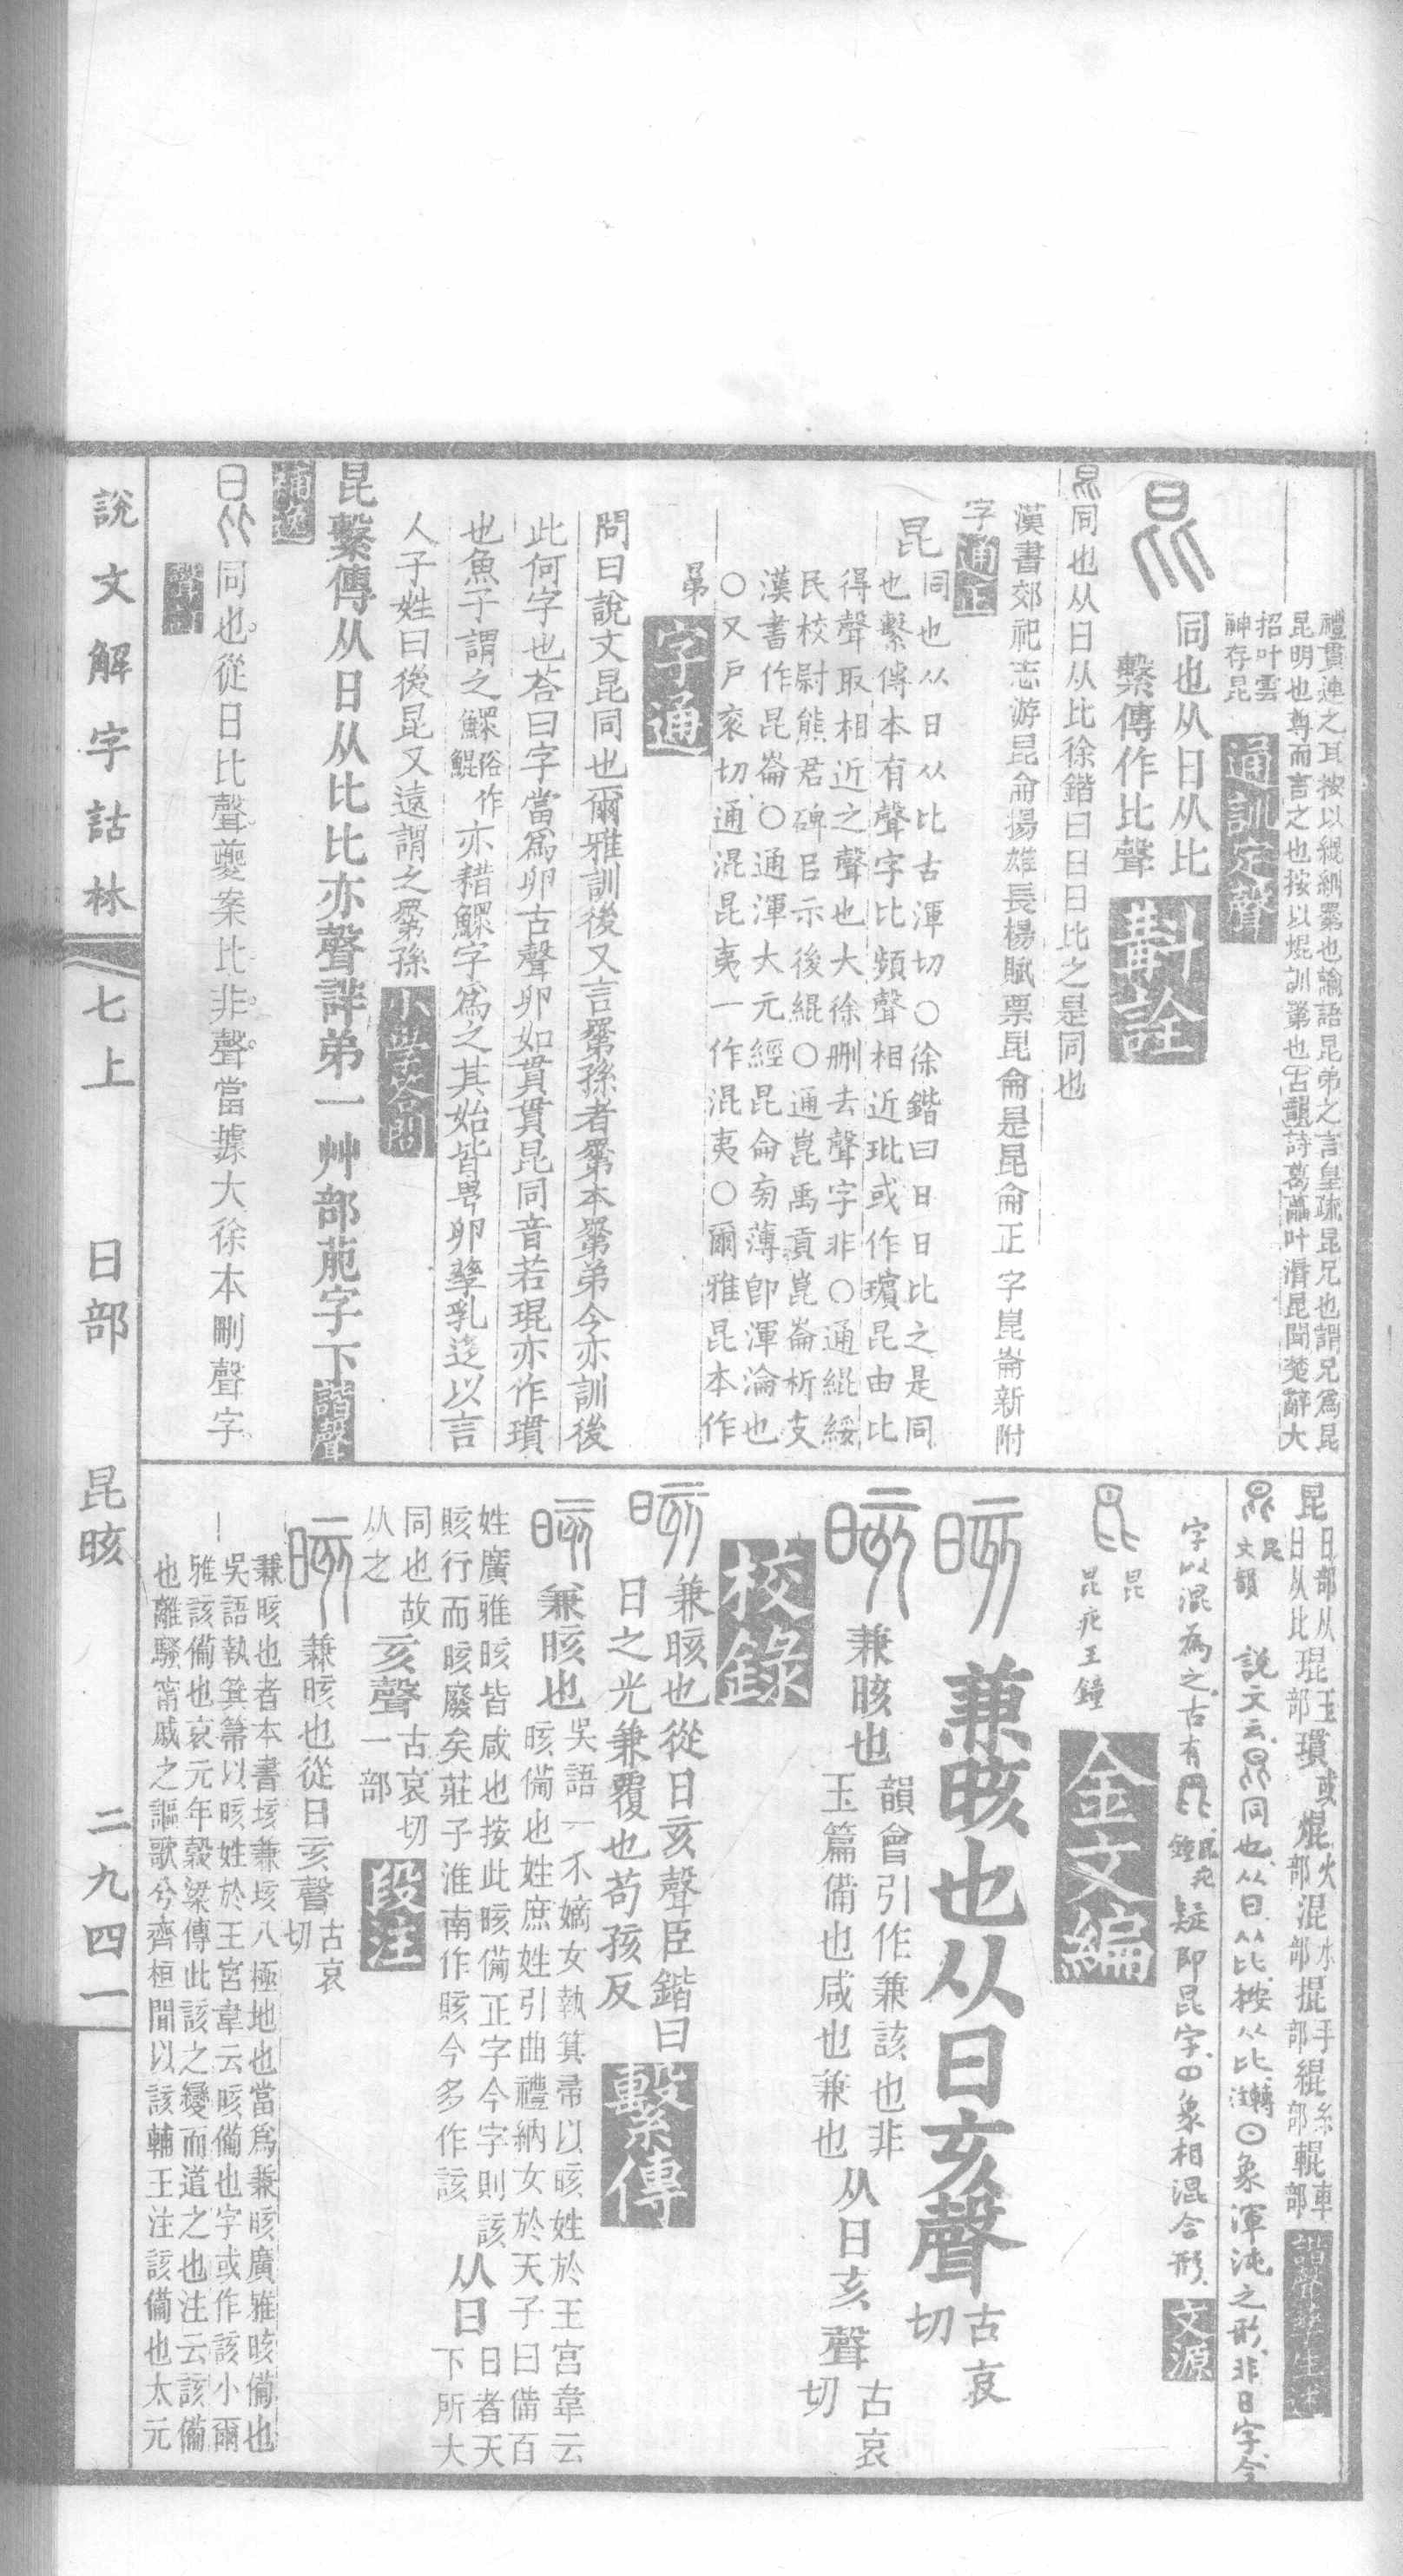 禮貫連之耳按以緄綱罤也論語昆弟之言皇疏昆兄也謂兄爲昆
昆明也尊而言之也按以焜訓第也古韻詩葛藟叶漘昆聞楚辭大
招叶雲
神存昆
通訓定聲
同也从日从比
繫傳作比聲
斠詮
同也从日从比徐鍇曰日日比之是同也
漢書郊祀志游昆侖揚雄長楊賦票昆侖是昆侖正字崑崙新附
字
通正
昆
同也从日从比古渾切○徐鍇曰日日比之是同
也繫傳本有聲字比頻聲相近玭或作蠙昆由比
得聲取相近之聲也大徐删去聲字非○通緄綏
民校尉熊君碑㠯示後緄○通崑禹貢崑崙析支
漢書作昆崙○通渾大元經昆侖旁薄卽渾淪也
○又戸衮切通混昆夷一作混夷○爾雅昆本作
罤
字通
問曰說文昆同也爾雅訓後又言罤孫者罤本罤弟今亦訓後
此何字也荅曰字當爲卵古聲卵如貫貫昆同音若琨亦作瑻
也魚子謂之鰥俗作鯤亦耤鰥字爲之其始皆㽙卵孳乳迻以言
人子姓曰後昆又遠謂之罤孫
小學答問
昆繫傳从日从比比亦聲詳弟一艸部菎字下
諧聲
補逸
同也從日比聲夔案比非聲當據大徐本刪聲字
昆
日部从日从比
琨玉部瑻或焜火部混水部掍手部緄糸部輥車部
諧聲孳生述
昆
文韻
說文云同也从日从比按从比轉注⊙象渾沌之形非日字今
字以混爲之古有昆疕鐘疑卽昆字象相混合形
文源
昆
昆疕王鐘
金文編
兼晐也从日亥聲
古哀切
兼晐也
韻會引作兼該也非
玉篇備也咸也兼也
从日亥聲
古哀切
校錄
兼晐也從日亥聲臣鍇曰
日之光兼覆也苟孩反
繫傳
兼晐也
吳語一不嫡女執箕帚以晐姓於王宮韋云
晐備也姓庶姓引曲禮納女於天子曰備百
姓廣雅晐皆咸也按此晐備正字今字則該
賅行而晐廢矣莊子淮南作賅今多作該
从日
日者天下所大
同也故从之
亥聲
古哀切
一部
段注
兼晐也從日亥聲
古哀切
兼晐也者本書垓兼垓八極地也當爲兼晐廣雅晐備也
吳語執箕箒以晐姓於王宮韋云晐備也字或作該小爾
雅該備也哀元年穀梁傳此該之變而道之也注云該備
也離騷甯戚之謳歌兮齊桓聞以該輔王注該備也太元
說文解字詁林
七上
日部
昆晐
二九四一